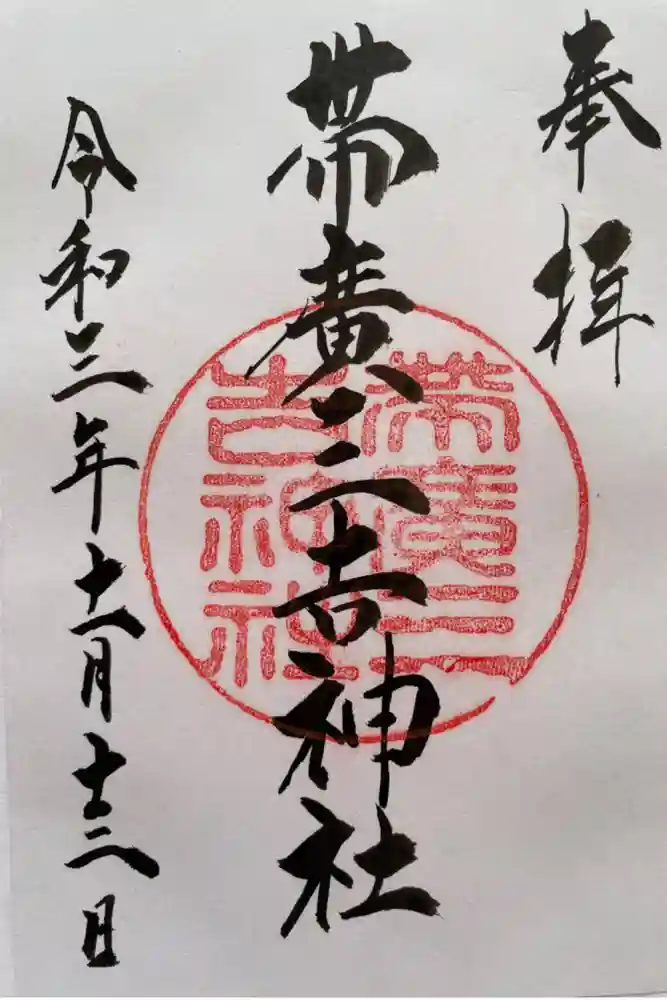 奉拝
帯廣三吉神社
帯廣三
吉神社
令和三年十一月十二日